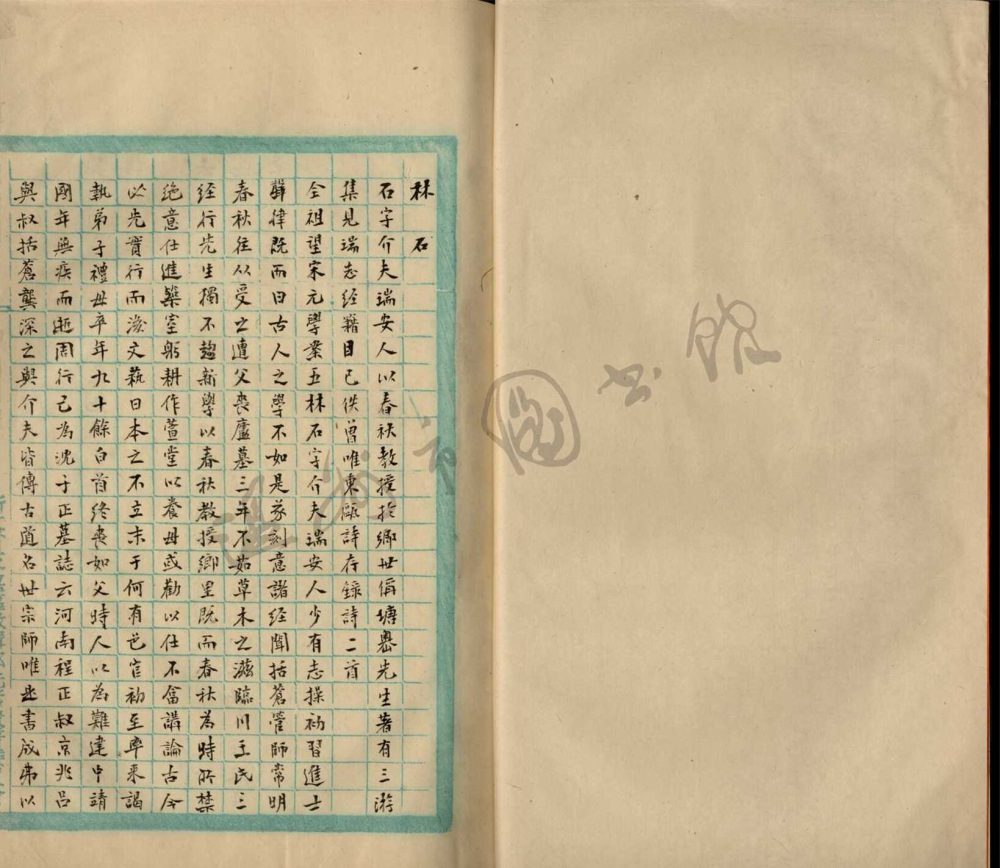 林石
石字介夫瑞安人以春秋教授於鄉世偁塘嶴先生著有三游
集見瑞志經籍目已佚曾唯東甌詩存錄詩二首
全祖望宋元學案五林石字介夫瑞安人少有志操初習進士
聲律既而曰古人之學不如是遂刻意諸經聞括蒼管師常明
春秋往从受之遭父喪廬墓三年不茹草木之滋臨川王氏三
經行先生獨不趨新學以春秋教授鄉里既而春秋為時所禁
絶意仕進築室躬耕作萱堂以養母或勸以仕不畣講論古今
必先實行而後文蓺曰本之不立末于何有邑官初至率來謁
執弟子禮母卒年九十餘白首終喪如父時人以為難建中靖
國年無疾而逝周行己為沈子正墓誌云河南程正叔京兆呂
與叔括蒼龔深之與介夫皆傳古道名世宗師唯
書成弗以
圖書館